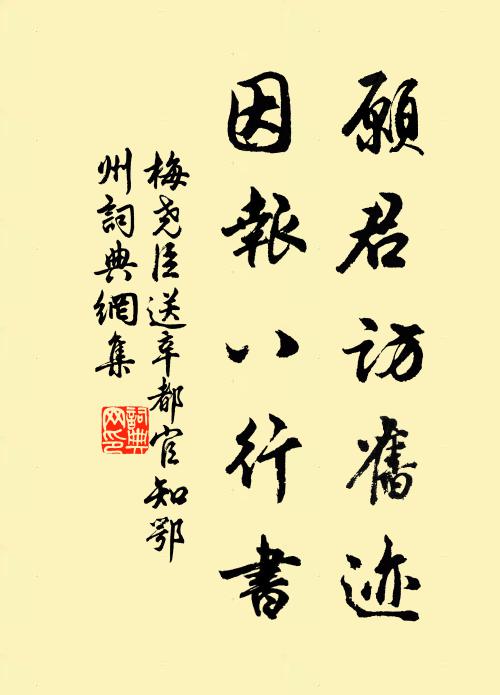 願君访舊迹
因報八行書
梅尧臣送辛都官知鄂
州詞典網集
詞典网印